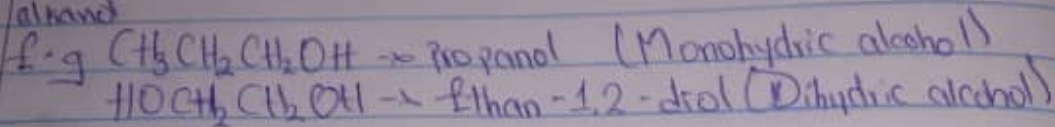 alkanol
E.g CH₃CH₂CH₂OH → Propanol (Monohydric alcohol)
HOCH₂CH₂OH → Ethan-1,2-diol (Dihydric alcohol)